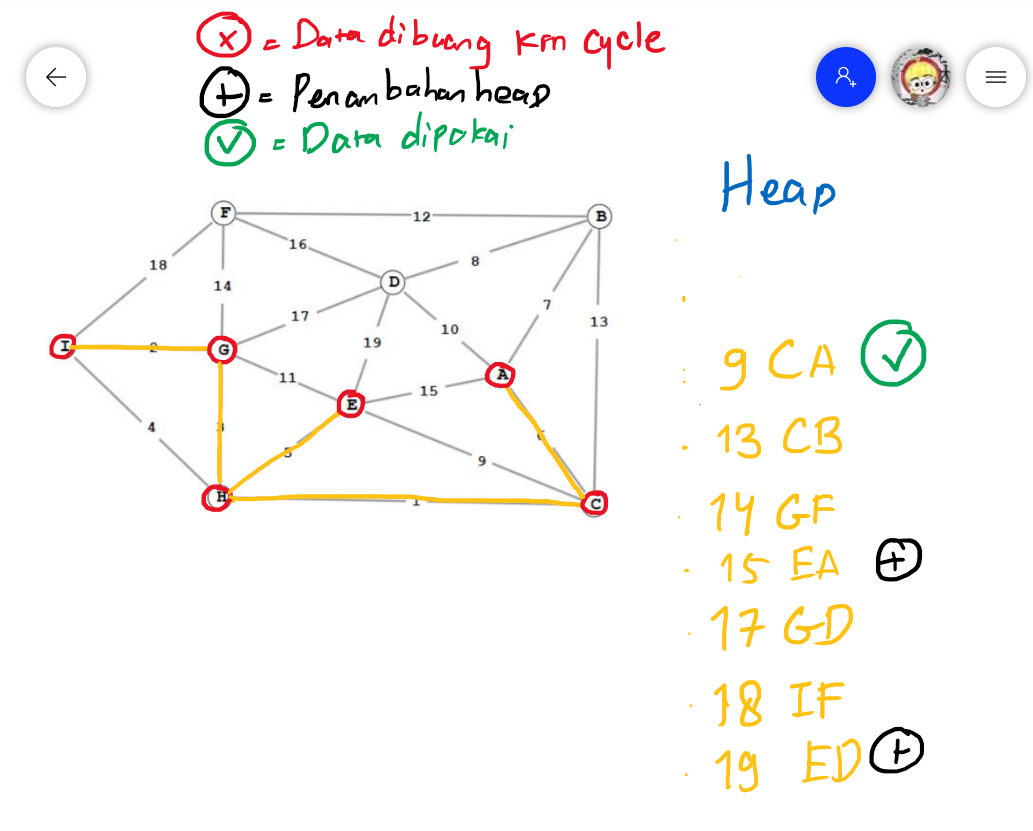 x = Data dibuang krn cycle
+ = Penambahan heap
✓ = Data dipakai
Heap
F 12 B
16
8
18
D
14
7
17
10
13
19
I 2 G
11
A
15
E
4
3
6
5
9
H 1 C
9 CA ✓
13 CB
14 GF
15 EA +
17 GD
18 IF
19 ED +